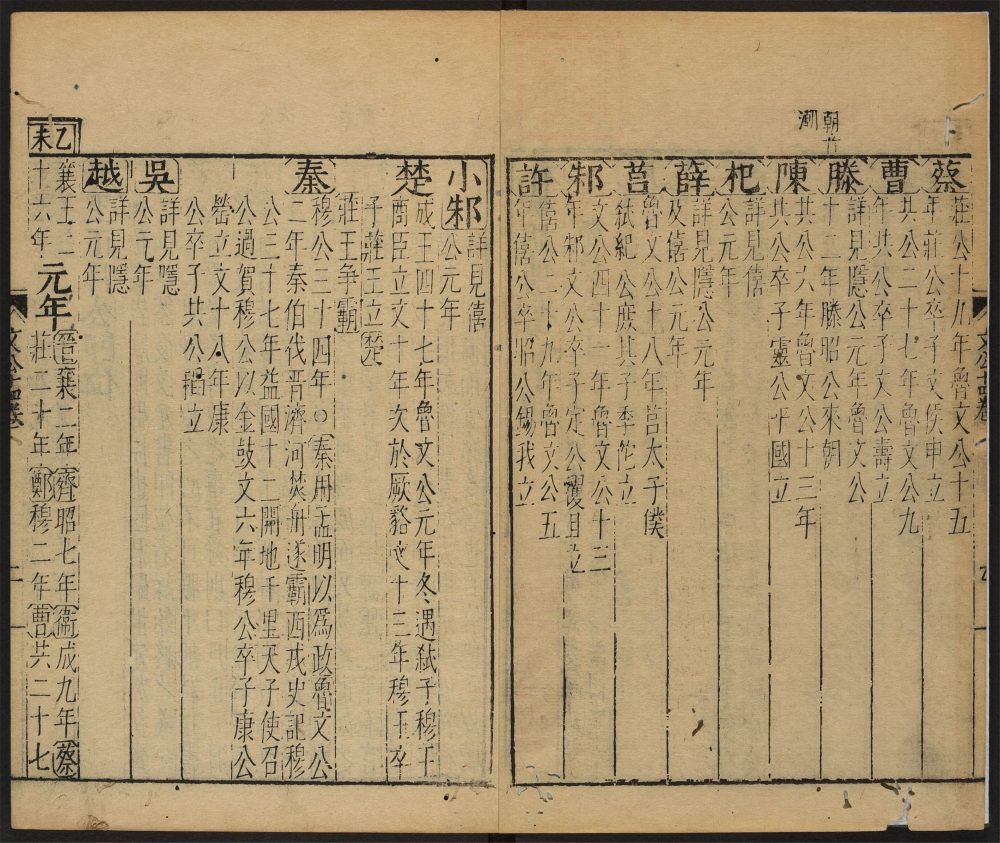 朝廿
潮
蔡莊公十八年魯文公十五
年莊公卒子文侯申立
曹共公二十七年魯文公九
年共公卒子文公壽立
滕詳見隱公元年魯文公
十二年滕昭公來朝
陳共公六年魯文公十三年
共公卒子靈公平國立
杞詳見僖
公元年
薛詳見隱公元年
及僖公元年
莒魯文公十八年莒太子僕
弒紀公庶其子季佗立
邾文公四十一年魯文公十三
年邾文公卒子定公貜且立
許僖公二十九年魯文公五
年僖公卒昭公錫我立
小邾詳見僖
公元年
楚成王四十七年魯文公元年冬遇弒子穆王
商臣立文十年次於厥貉文十三年穆王卒
子莊王立楚
莊王爭霸
秦穆公三十四年○秦用孟明以爲政魯文公
二年秦伯伐晉濟河焚舟遂霸西戎史記穆
公三十七年益國十二開地千里天子使召
公過賀穆公以金鼓文六年穆公卒子康公
罃立文十八年康
公卒子共公稻立
吳詳見隱
公元年
越詳見隱
公元年
乙未
襄王二
十六年
元年
晉襄二年齊昭七年衞成九年蔡
莊二十年鄭穆二年曹共二十七